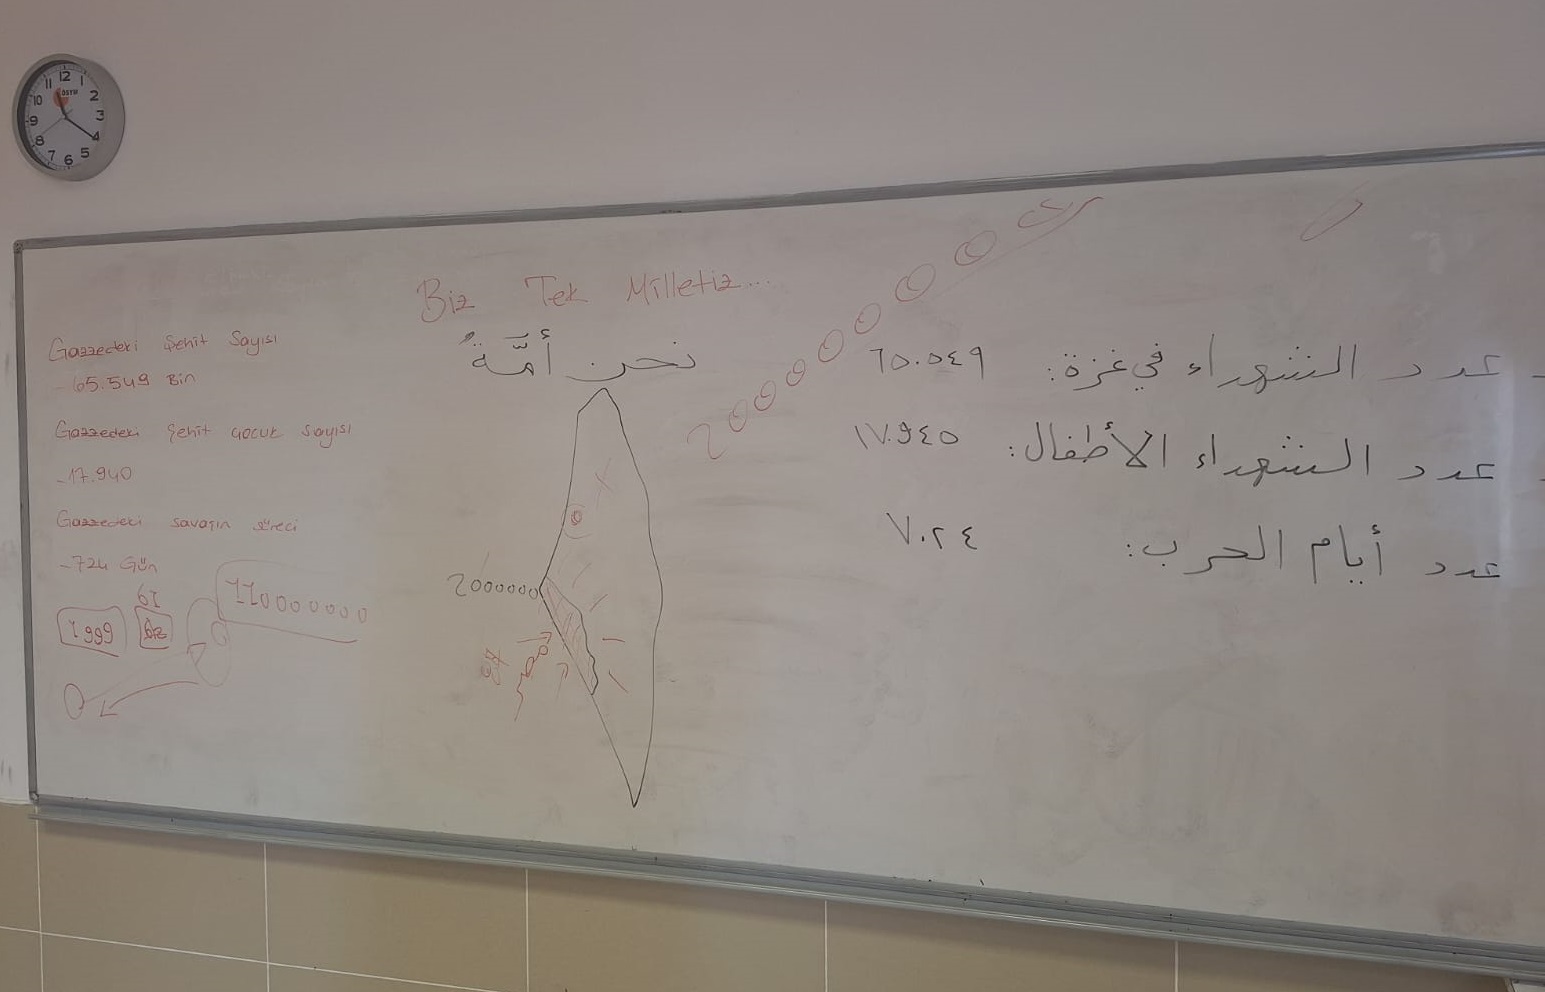 Biz Tek Milletiz...
نحن أمّةٌ
Gazzedeki Şehit Sayısı
- 65.549 Bin
Gazzedeki Şehit Çocuk Sayısı
- 17.940
Gazzedeki savaşın süreci
- 724 Gün
61
1999
110000000
2000000
20000000
- عدد الشهداء في غزة: ٦٥.٥٤٩
- عدد الشهداء الأطفال: ١٧.٩٤٥
عدد أيام الحرب: ٧.٢٤
ÖSYM
12
1
2
3
4
5
6
7
8
9
10
11